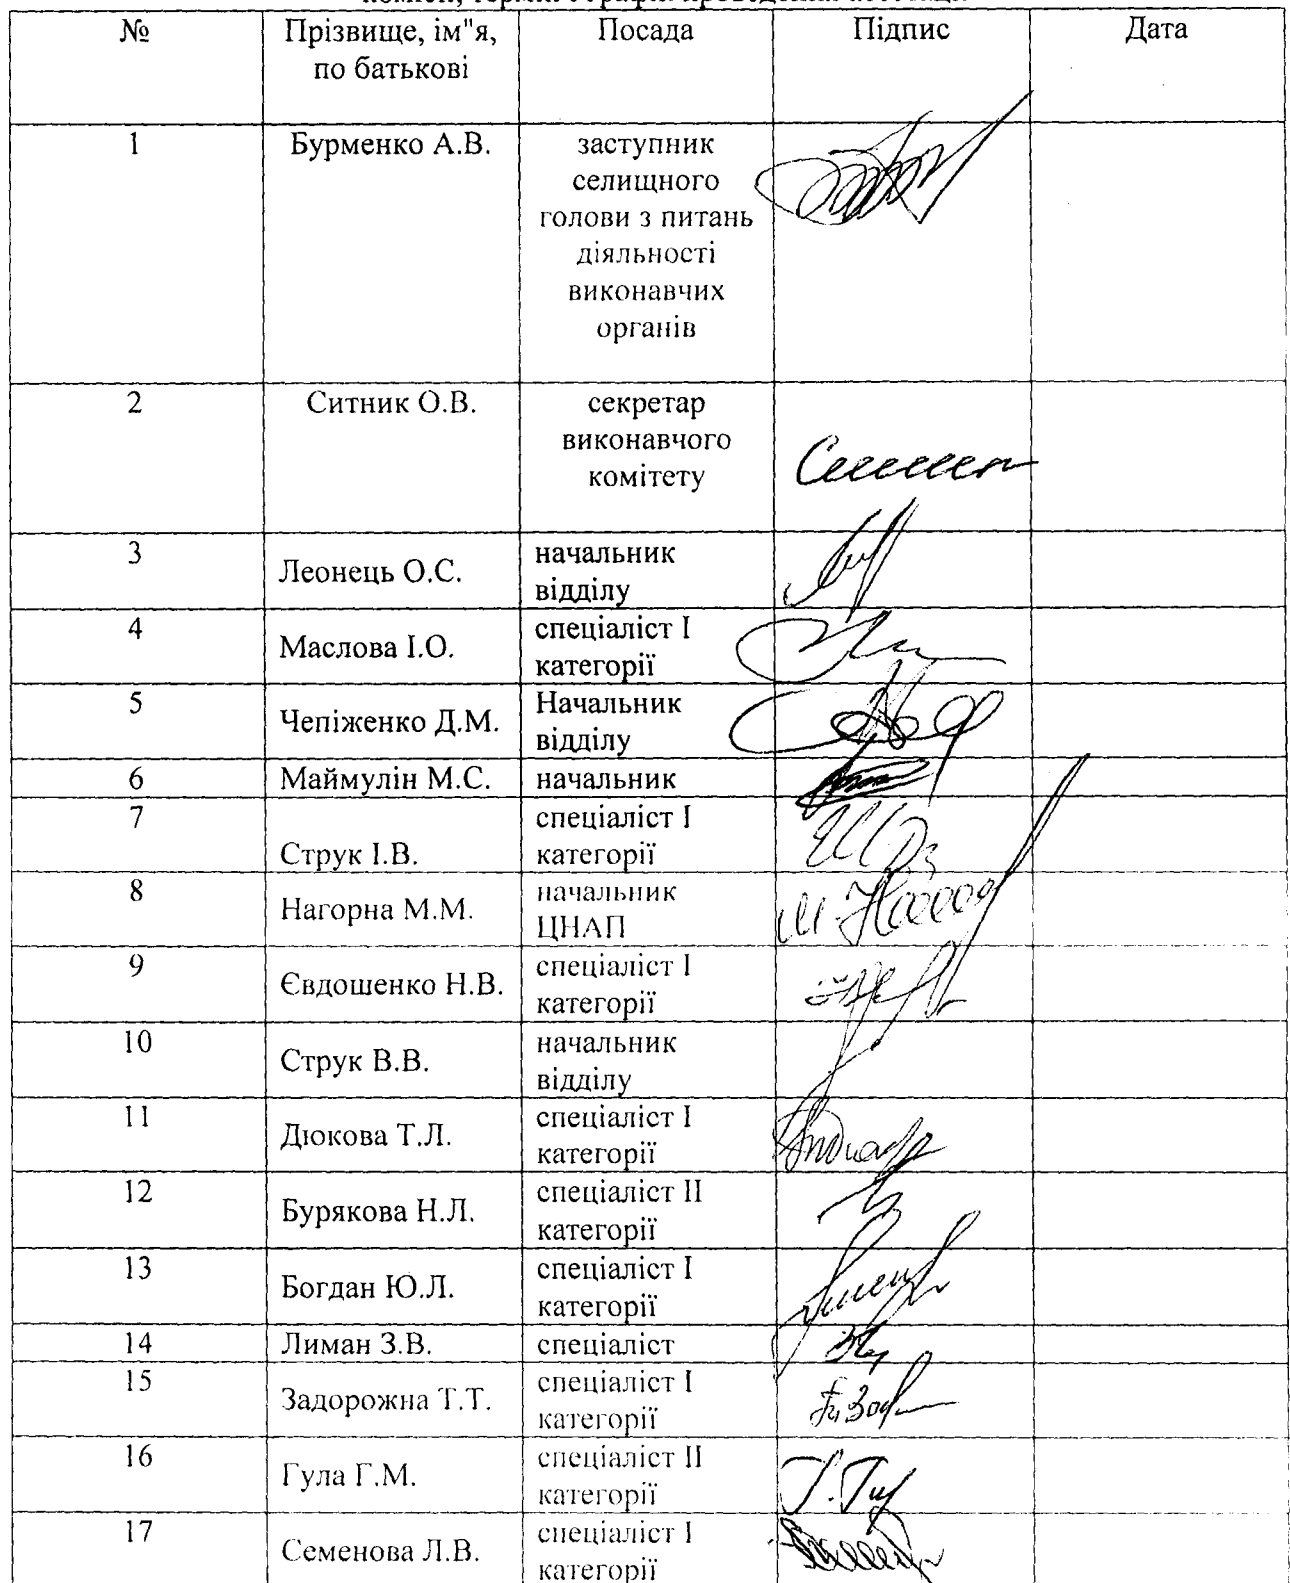 № Прізвище, ім"я, Посада Підпис Дата
по батькові
1 Бурменко А.В. заступник
селищного
голови з питань
діяльності
виконавчих
органів
2 Ситник О.В. секретар
виконавчого
комітету
3 Леонець О.С. начальник
відділу
4 Маслова І.О. спеціаліст І
категорії
5 Чепіженко Д.М. Начальник
відділу
6 Маймулін М.С. начальник
7 Струк І.В. спеціаліст І
категорії
8 Нагорна М.М. начальник
ЦНАП
9 Євдошенко Н.В. спеціаліст І
категорії
10 Струк В.В. начальник
відділу
11 Дюкова Т.Л. спеціаліст І
категорії
12 Бурякова Н.Л. спеціаліст ІІ
категорії
13 Богдан Ю.Л. спеціаліст І
категорії
14 Лиман З.В. спеціаліст
15 Задорожна Т.Т. спеціаліст І
категорії
16 Гула Г.М. спеціаліст ІІ
категорії
17 Семенова Л.В. спеціаліст І
категорії